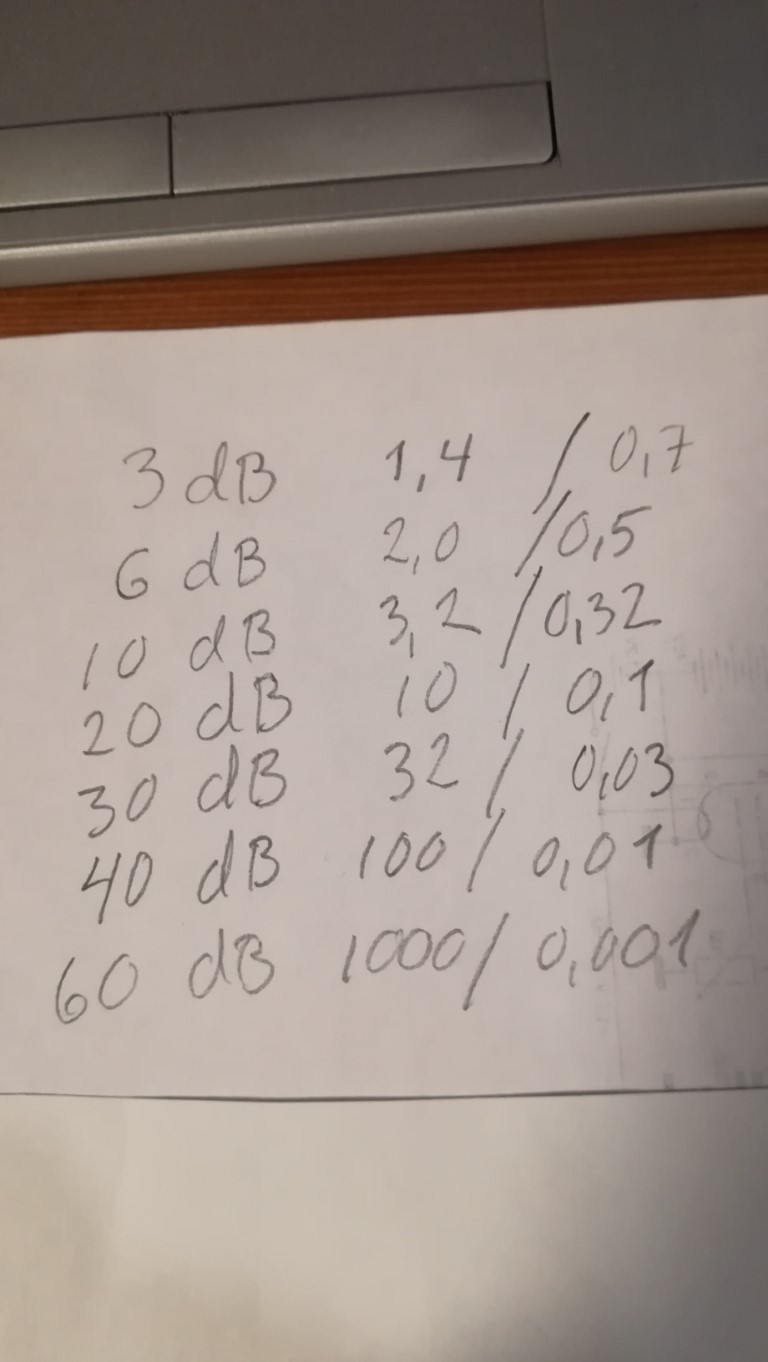 3 dB 1,4 / 0,7
6 dB 2,0 / 0,5
10 dB 3,2 / 0,32
20 dB 10 / 0,1
30 dB 32 / 0,03
40 dB 100 / 0,01
60 dB 1000 / 0,001